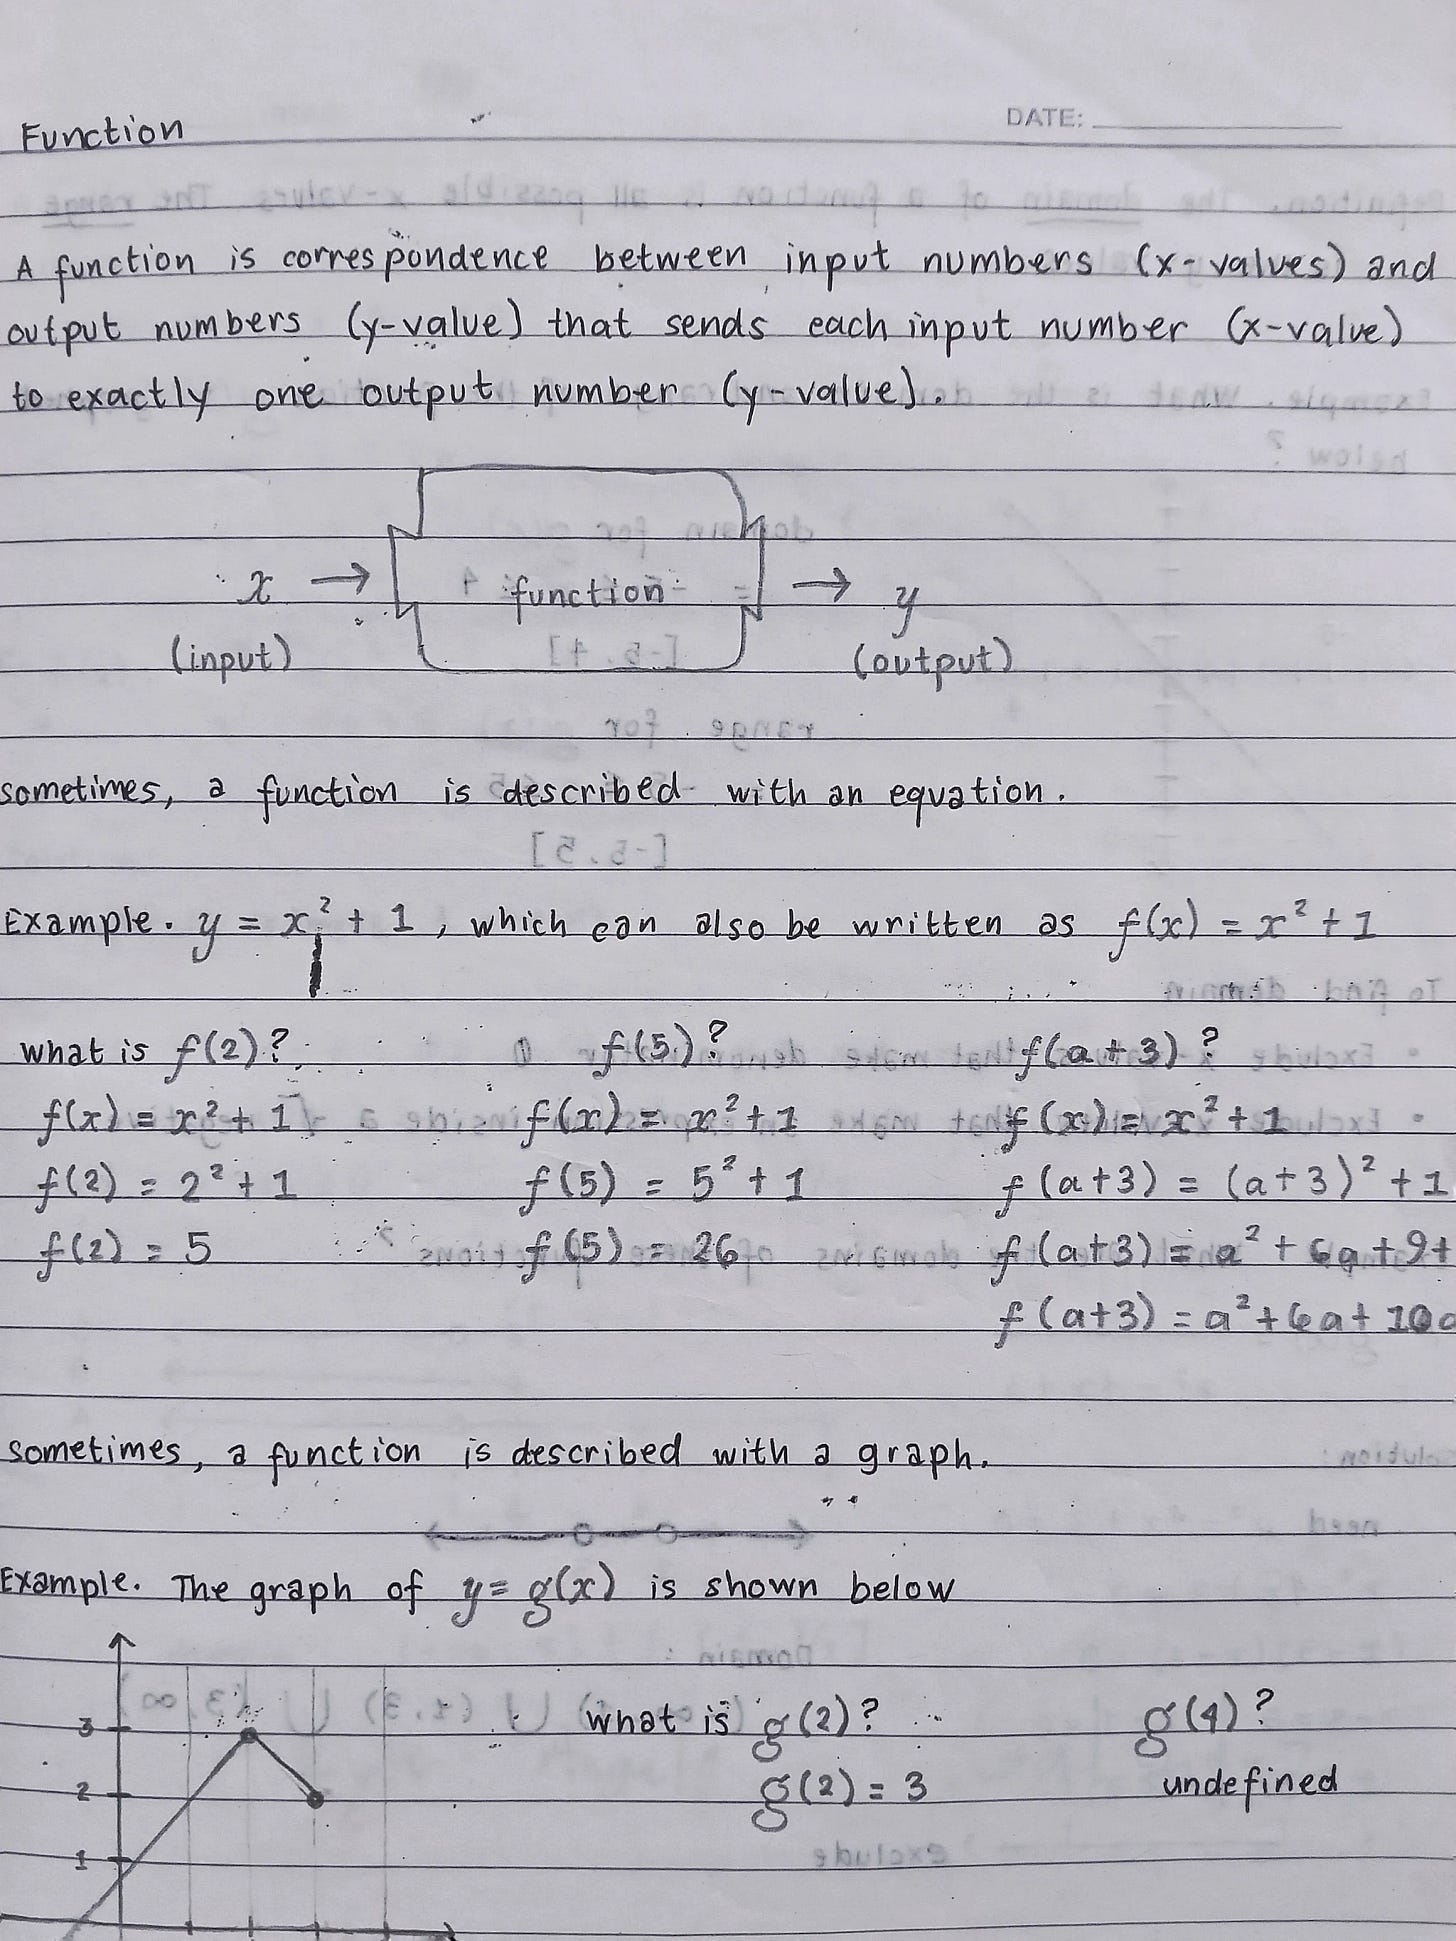 DATE:
Function
A function is correspondence between input numbers (x-values) and
output numbers (y-value) that sends each input number (x-value)
to exactly one output number (y-value).
x → function → y
(input) (output)
sometimes, a function is described with an equation.
Example. y = x² + 1, which can also be written as f(x) = x² + 1
what is f(2)? f(5)? f(a+3)?
f(x) = x² + 1 f(x) = x² + 1 f(x) = x² + 1
f(2) = 2² + 1 f(5) = 5² + 1 f(a+3) = (a+3)² + 1
f(2) = 5 f(5) = 26 f(a+3) = a² + 6a + 9+
f(a+3) = a² + 6a + 10
sometimes, a function is described with a graph.
Example. The graph of y = g(x) is shown below
3 what is g(2)? g(4)?
2 g(2) = 3 undefined
1